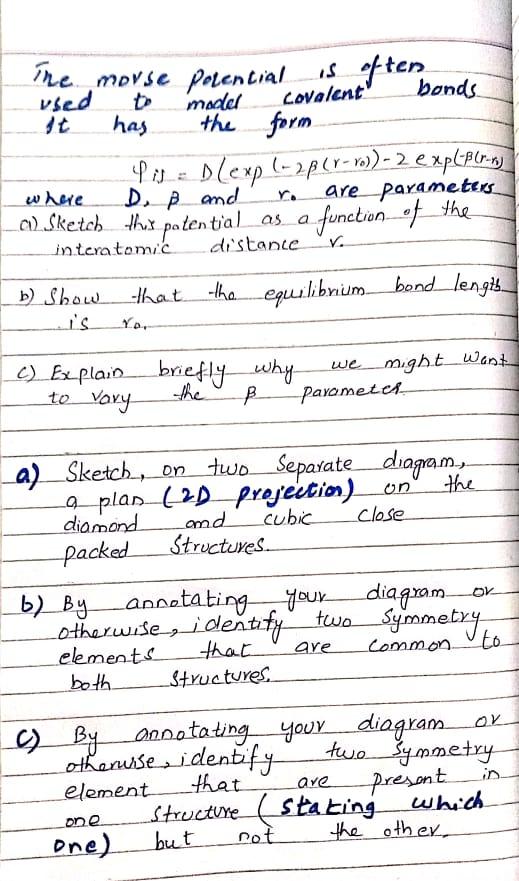 The morse potential is often
used to model covalent bonds
It has the form
φij = D(exp(-2β(r-r₀))-2exp(-β(r-r₀)
where D, β and r₀ are parameters
a) Sketch this potential as a function of the
interatomic distance r.
b) Show that the equilibrium bond length
is r₀.
c) Explain briefly why we might want
to vary the β parameter
a) Sketch, on two Separate diagram,
a plan (2D projection) on the
diamond and cubic close
packed Structures.
b) By annotating your diagram or
otherwise, identify two Symmetry
elements that are common to
both structures.
c) By annotating your diagram or
otherwise, identify two Symmetry
element that are present in
one structure (stating which
one) but not the other.